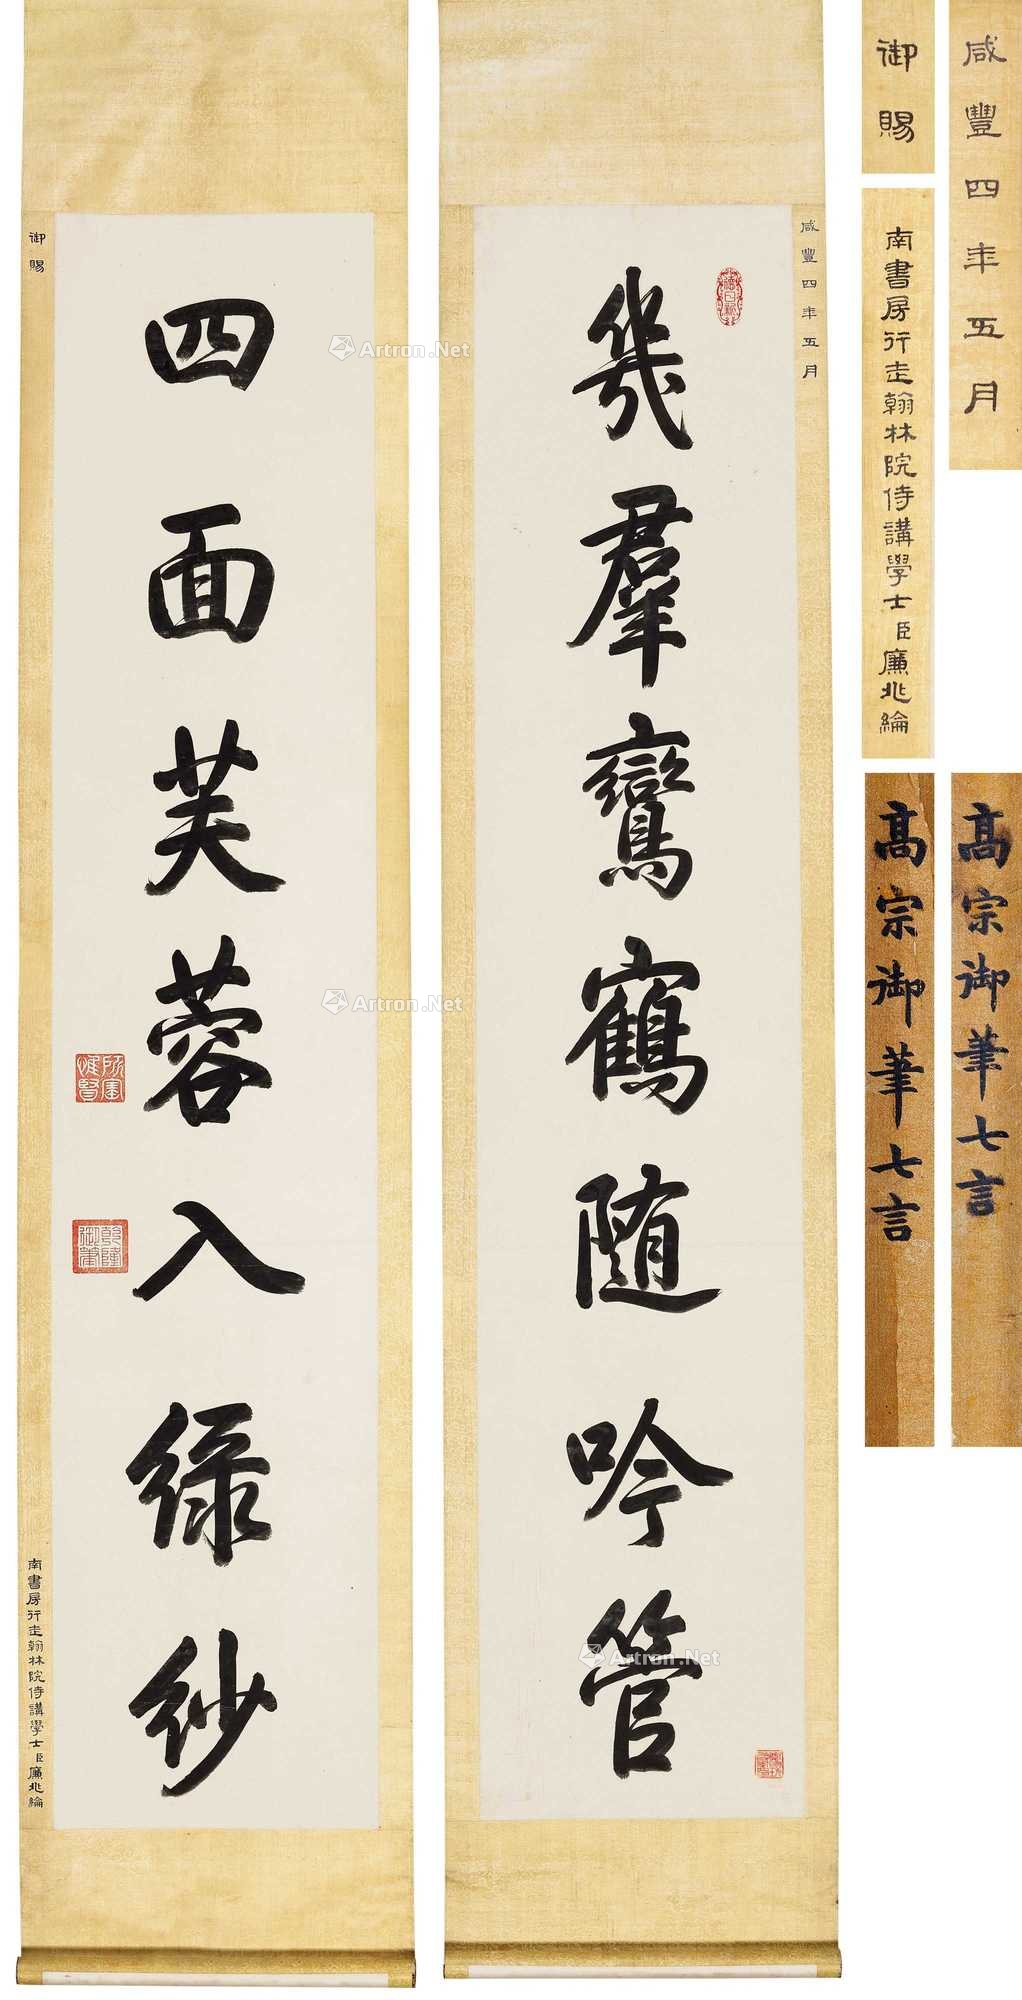 咸豐四年五月
幾羣鸞鶴随吟管
四面芙蓉入绿紗
御賜
南書房行走翰林院侍講學士臣廉兆綸
所寶惟賢
乾隆御筆
咸豐四年五月
御賜
南書房行走翰林院侍講學士臣廉兆綸
髙宗御筆七言
髙宗御筆七言
Artron.Net
Artron.Net
Artron.Net